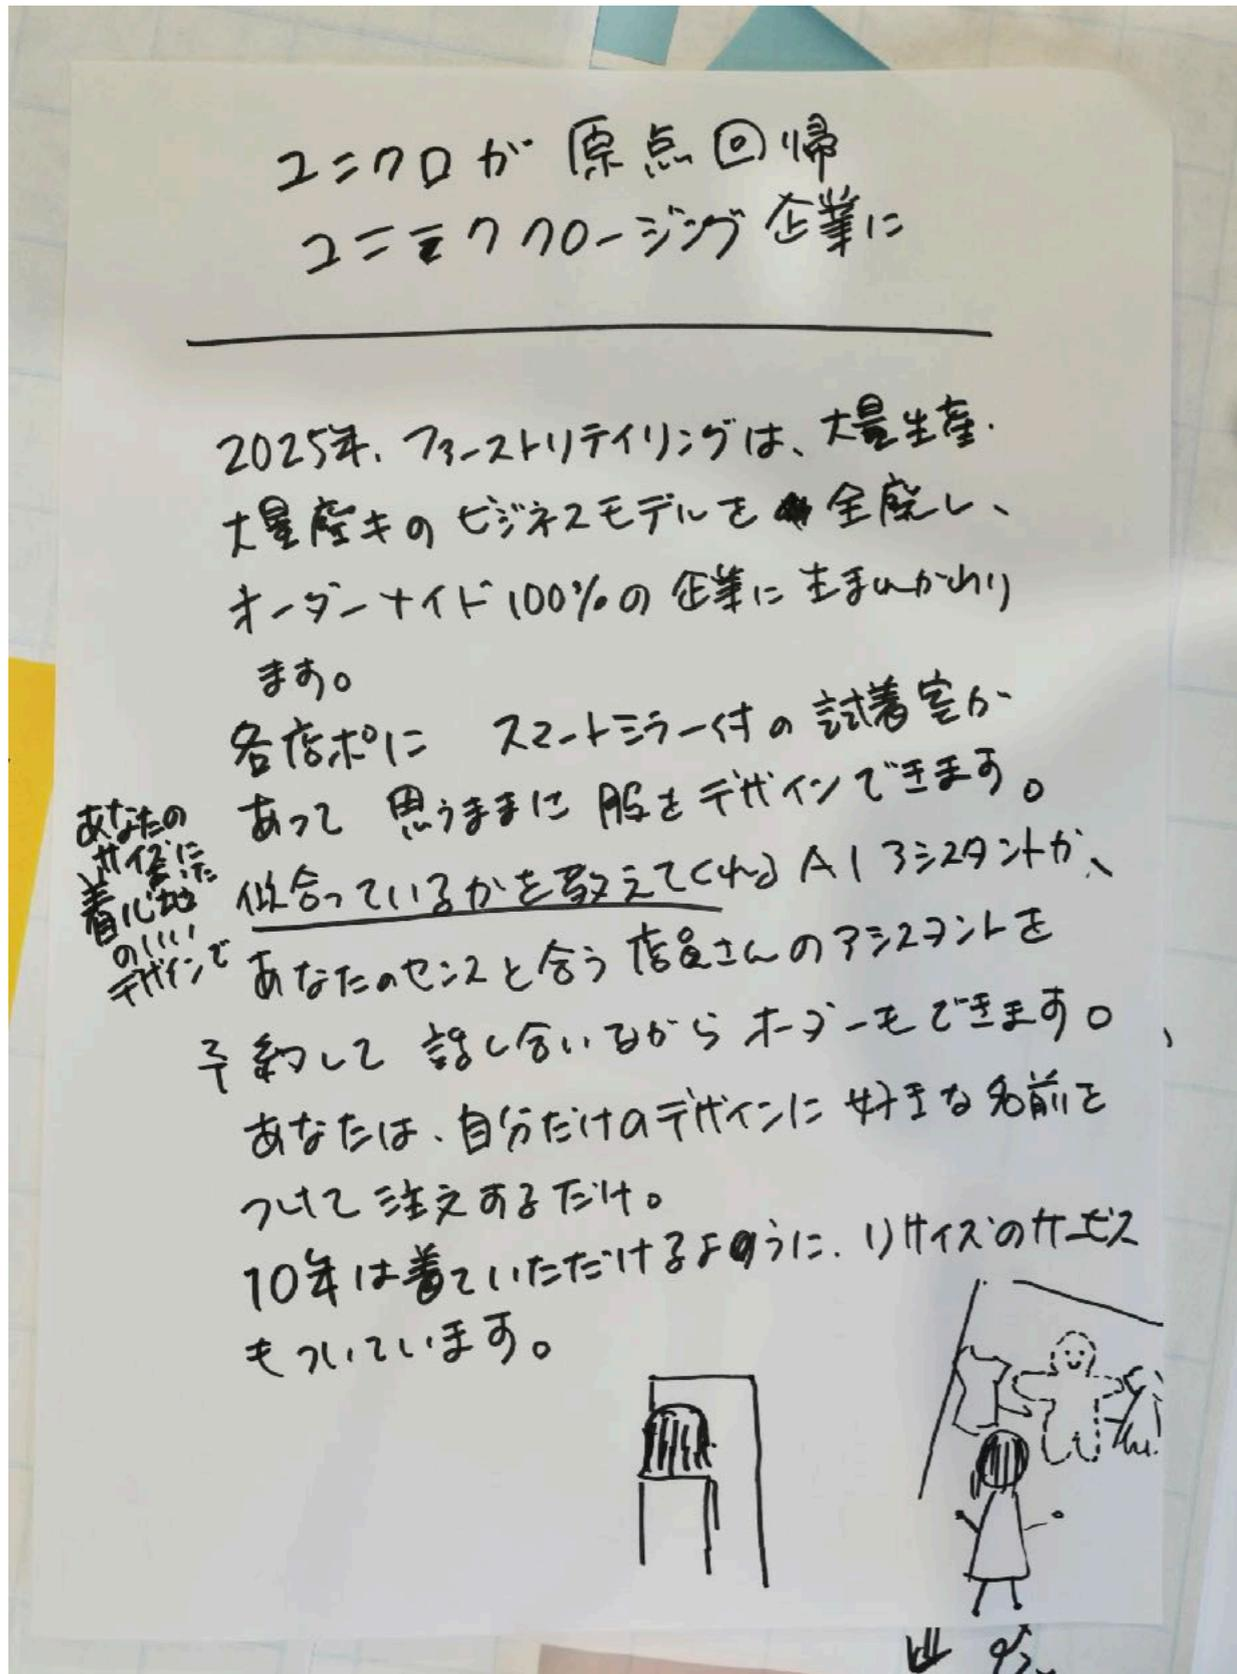 ユニクロが原点回帰
ユニーククロージング企業に
2025年、ファーストリテイリングは、大量生産・
大量廃キのビジネスモデルを全廃し、
オーダーメイド100%の企業に生まれかわり
ます。
各店ポに スマートミラー付の試着室が
あって 思うままに服をデザインできます。
似合っているかを教えてくれるAIアシスタントが、
あなたのセンスと合う店員さんのアシスタントを
予約して 話し合いながらオーダーもできます。
あなたは、自分だけのデザインに好きな名前を
つけて注文するだけ。
10年は着ていただけるように、リサイズのサービス
もついています。
あなたの
サイズに
着心地
のいい
デザインで